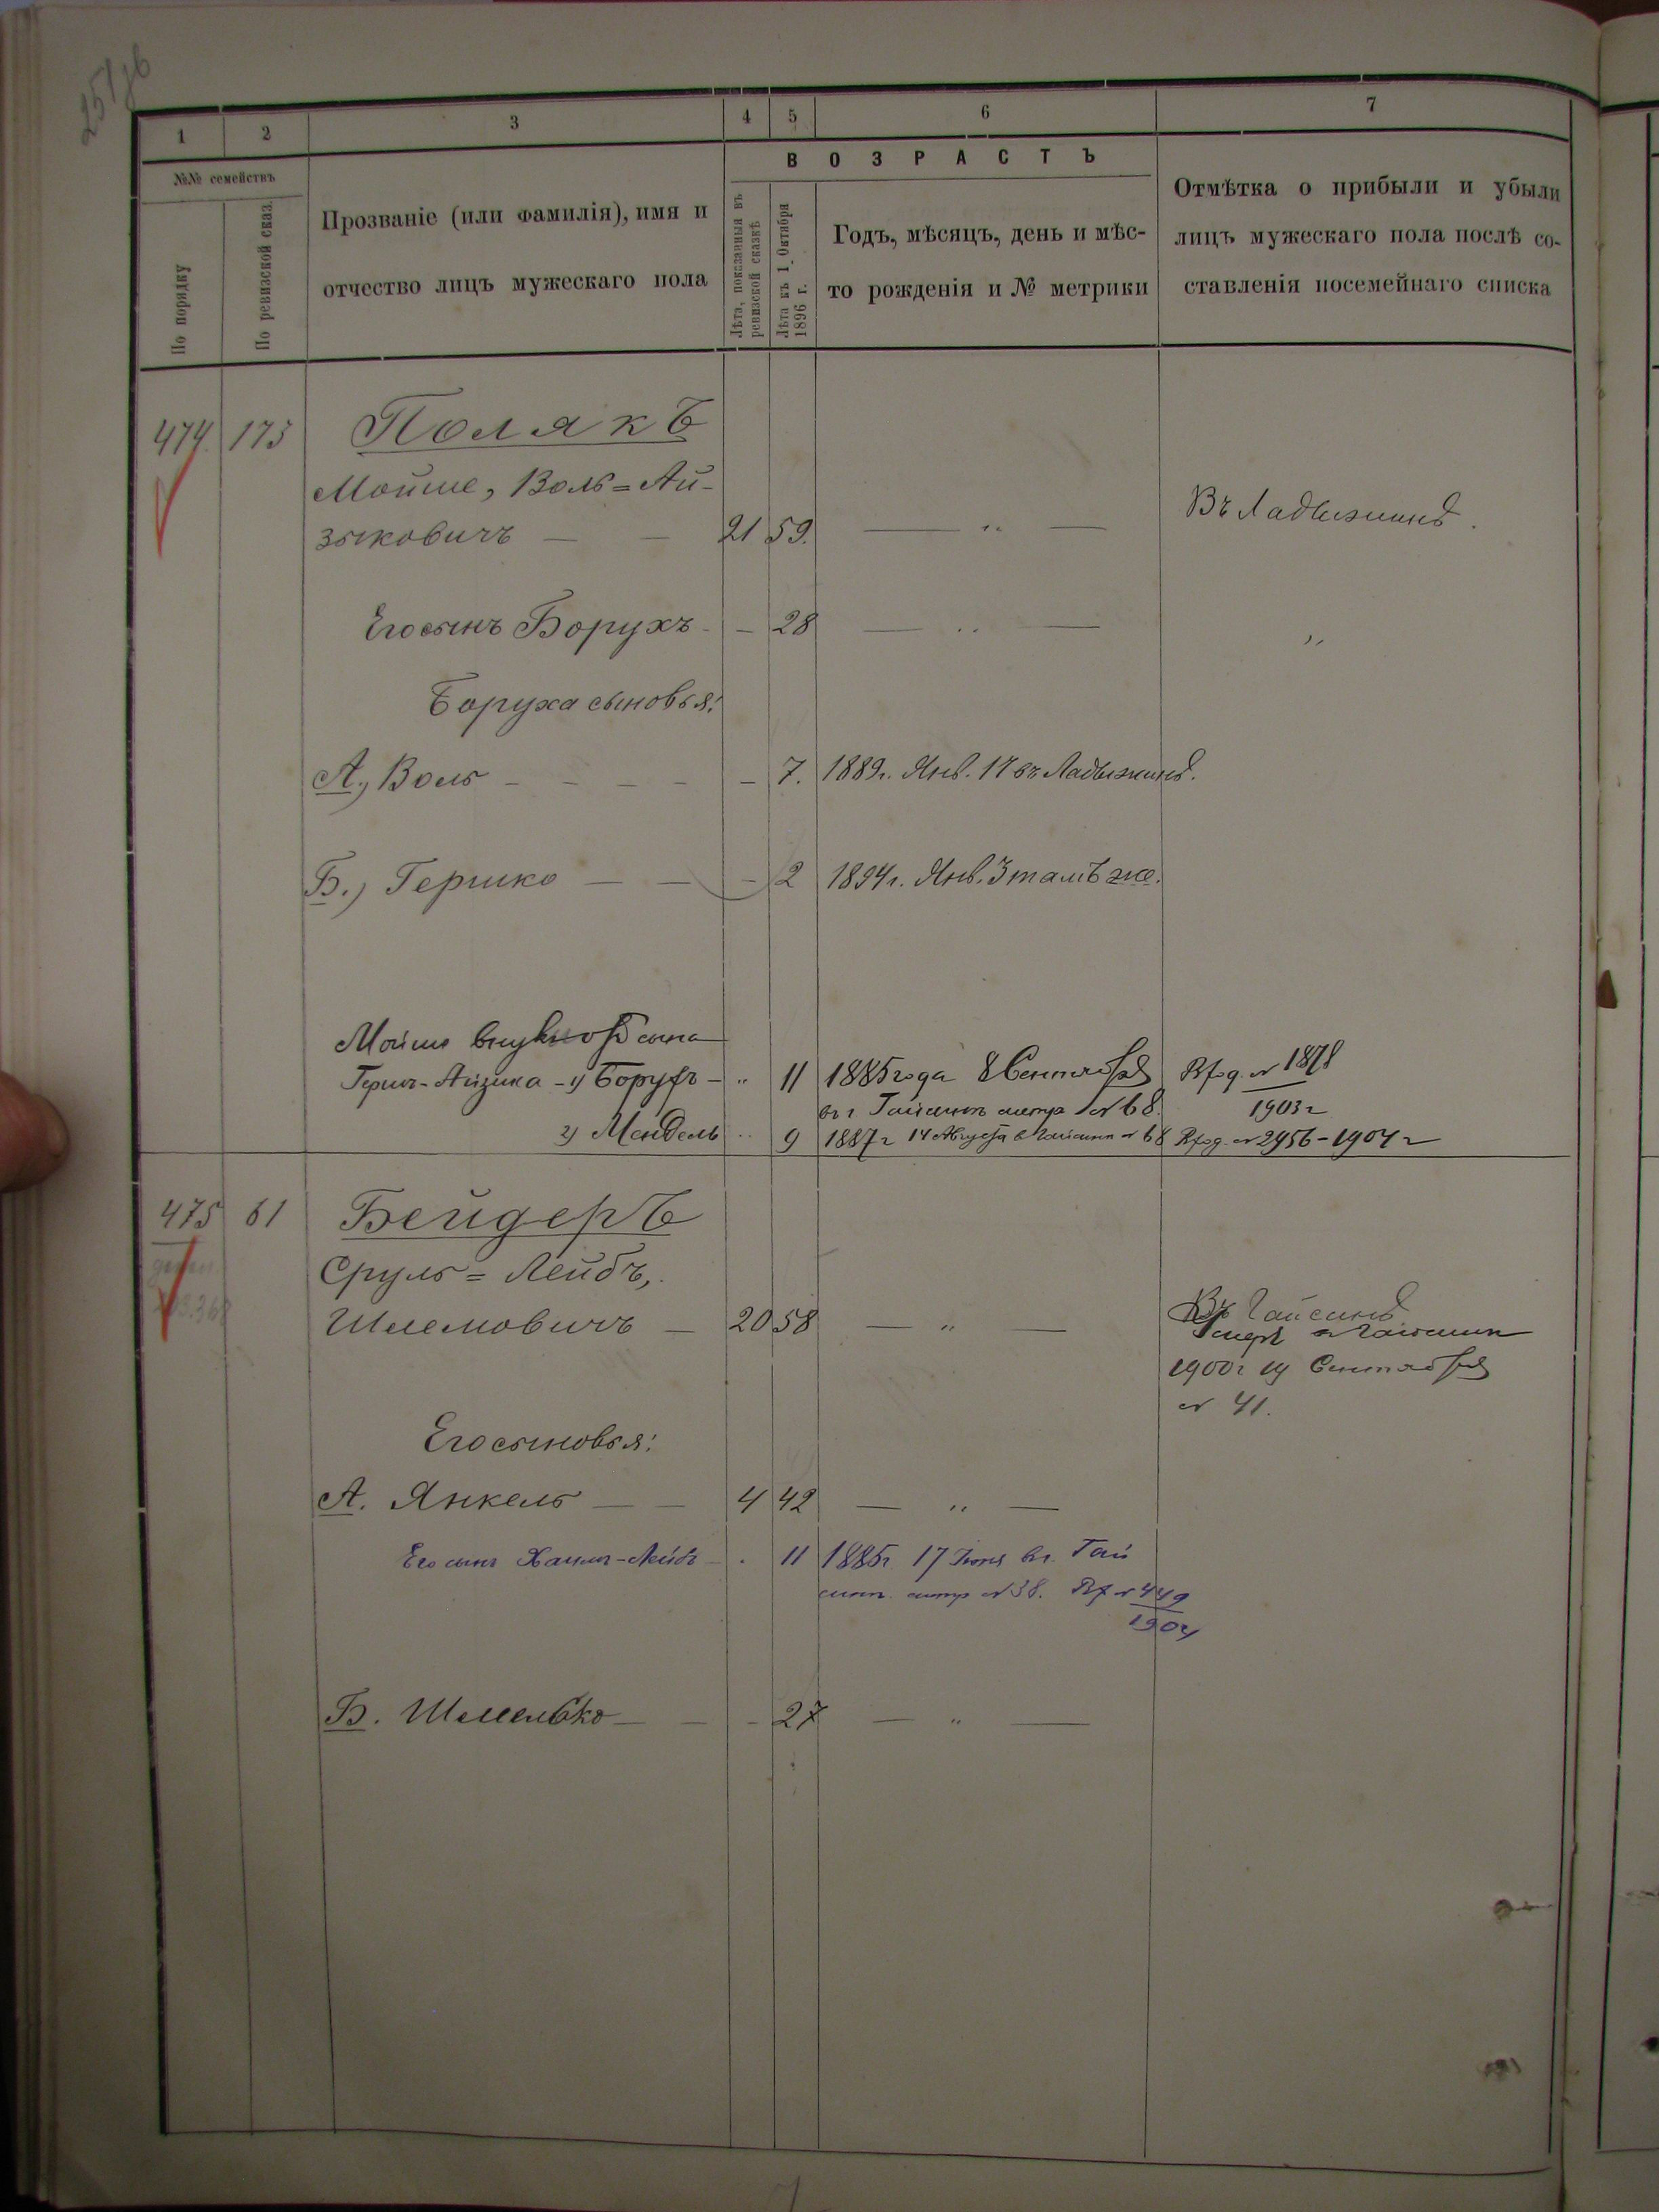 1 2 3 4 5 6 7
№№ семействъ
По порядку
По ревизской сказ.
Прозваніе (или фамилія), имя и
отчество лицъ мужескаго пола
ВОЗРАСТЪ
Лѣта, показанныя въ
ревизской сказкѣ
Лѣта къ 1 Октября
1896 г.
Годъ, мѣсяцъ, день и мѣс-
то рожденія и № метрики
Отмѣтка о прибыли и убыли
лицъ мужескаго пола послѣ со-
ставленія посемейнаго списка
474 175 Полякъ
Мойше, Воль=Ай-
зыковичъ — — 21 59. — „ — Въ Ладыжинѣ.
Его сынъ Борухъ - - 28 — „ — „
Боруха сыновья:
А., Воль - - - - - 7. 1889г. Янв. 17 въ Ладыжинѣ.
Б.) Гершко — — - 2 1894г. Янв. 3 тамъ же.
Мойше внуки отъ сына
Герш-Айзика - 1) Борухъ - „ 11 1885 года 8 Сентября № 1878
въ г Гайсинѣ метр № 68. 1903 г
2) Мендель „ 9 1887 г 14 Августа в Гайсинѣ № 68 № 2456 - 1904 г
475 61 Бейдеръ
Сруль=Лейбъ,
Шлемовичъ — 20 58 — „ — Въ Гайсинѣ
Умеръ в Гайсинѣ
1900 г 14 Сентября
№ 41.
Его сыновья:
А. Янкель — — 4 42 — „ —
Его сынъ Хаим-Лейбъ - . 11 1885 г 17 Іюня въ г. Гай
синѣ метр № 38. № 449
1904
Б. Шмелько — — - 27 — „ —